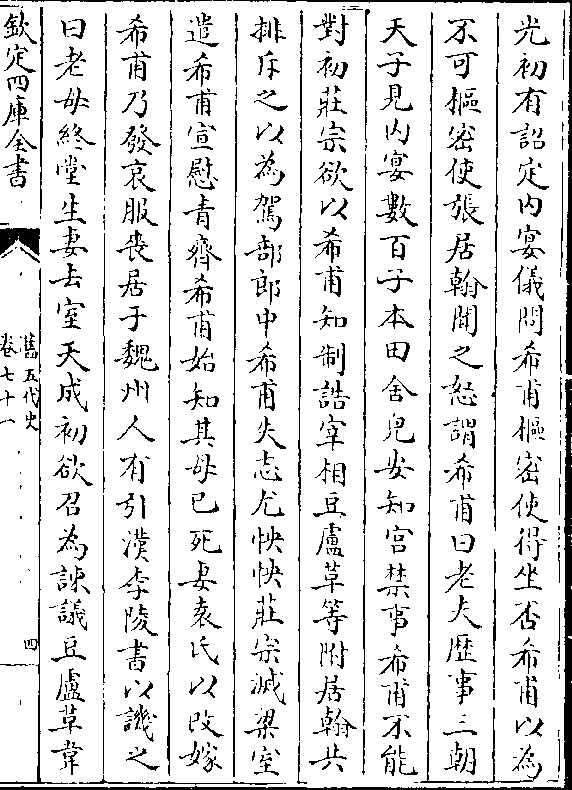 光初有詔定内宴儀問希甫樞密使得坐否希甫以為
不可樞密使張居翰聞之怒謂希甫曰老夫歴事三朝
天子見内宴數百子本田舍兒安知宫禁事希甫不能
對初莊宗欲以希甫知制誥宰相豆盧革等附居翰共
排斥之以為駕部郎中希甫失志尤怏怏莊宗滅梁室
遣希甫宣慰青齊希甫始知其母已死妻袁氏以改嫁
希甫乃發哀服喪居于魏州人有引漢李陵書以譏之
曰老母終堂生妻去室天成初欲召為諫議豆盧革韋
欽定四庫全書
舊五代史
卷七十一
四